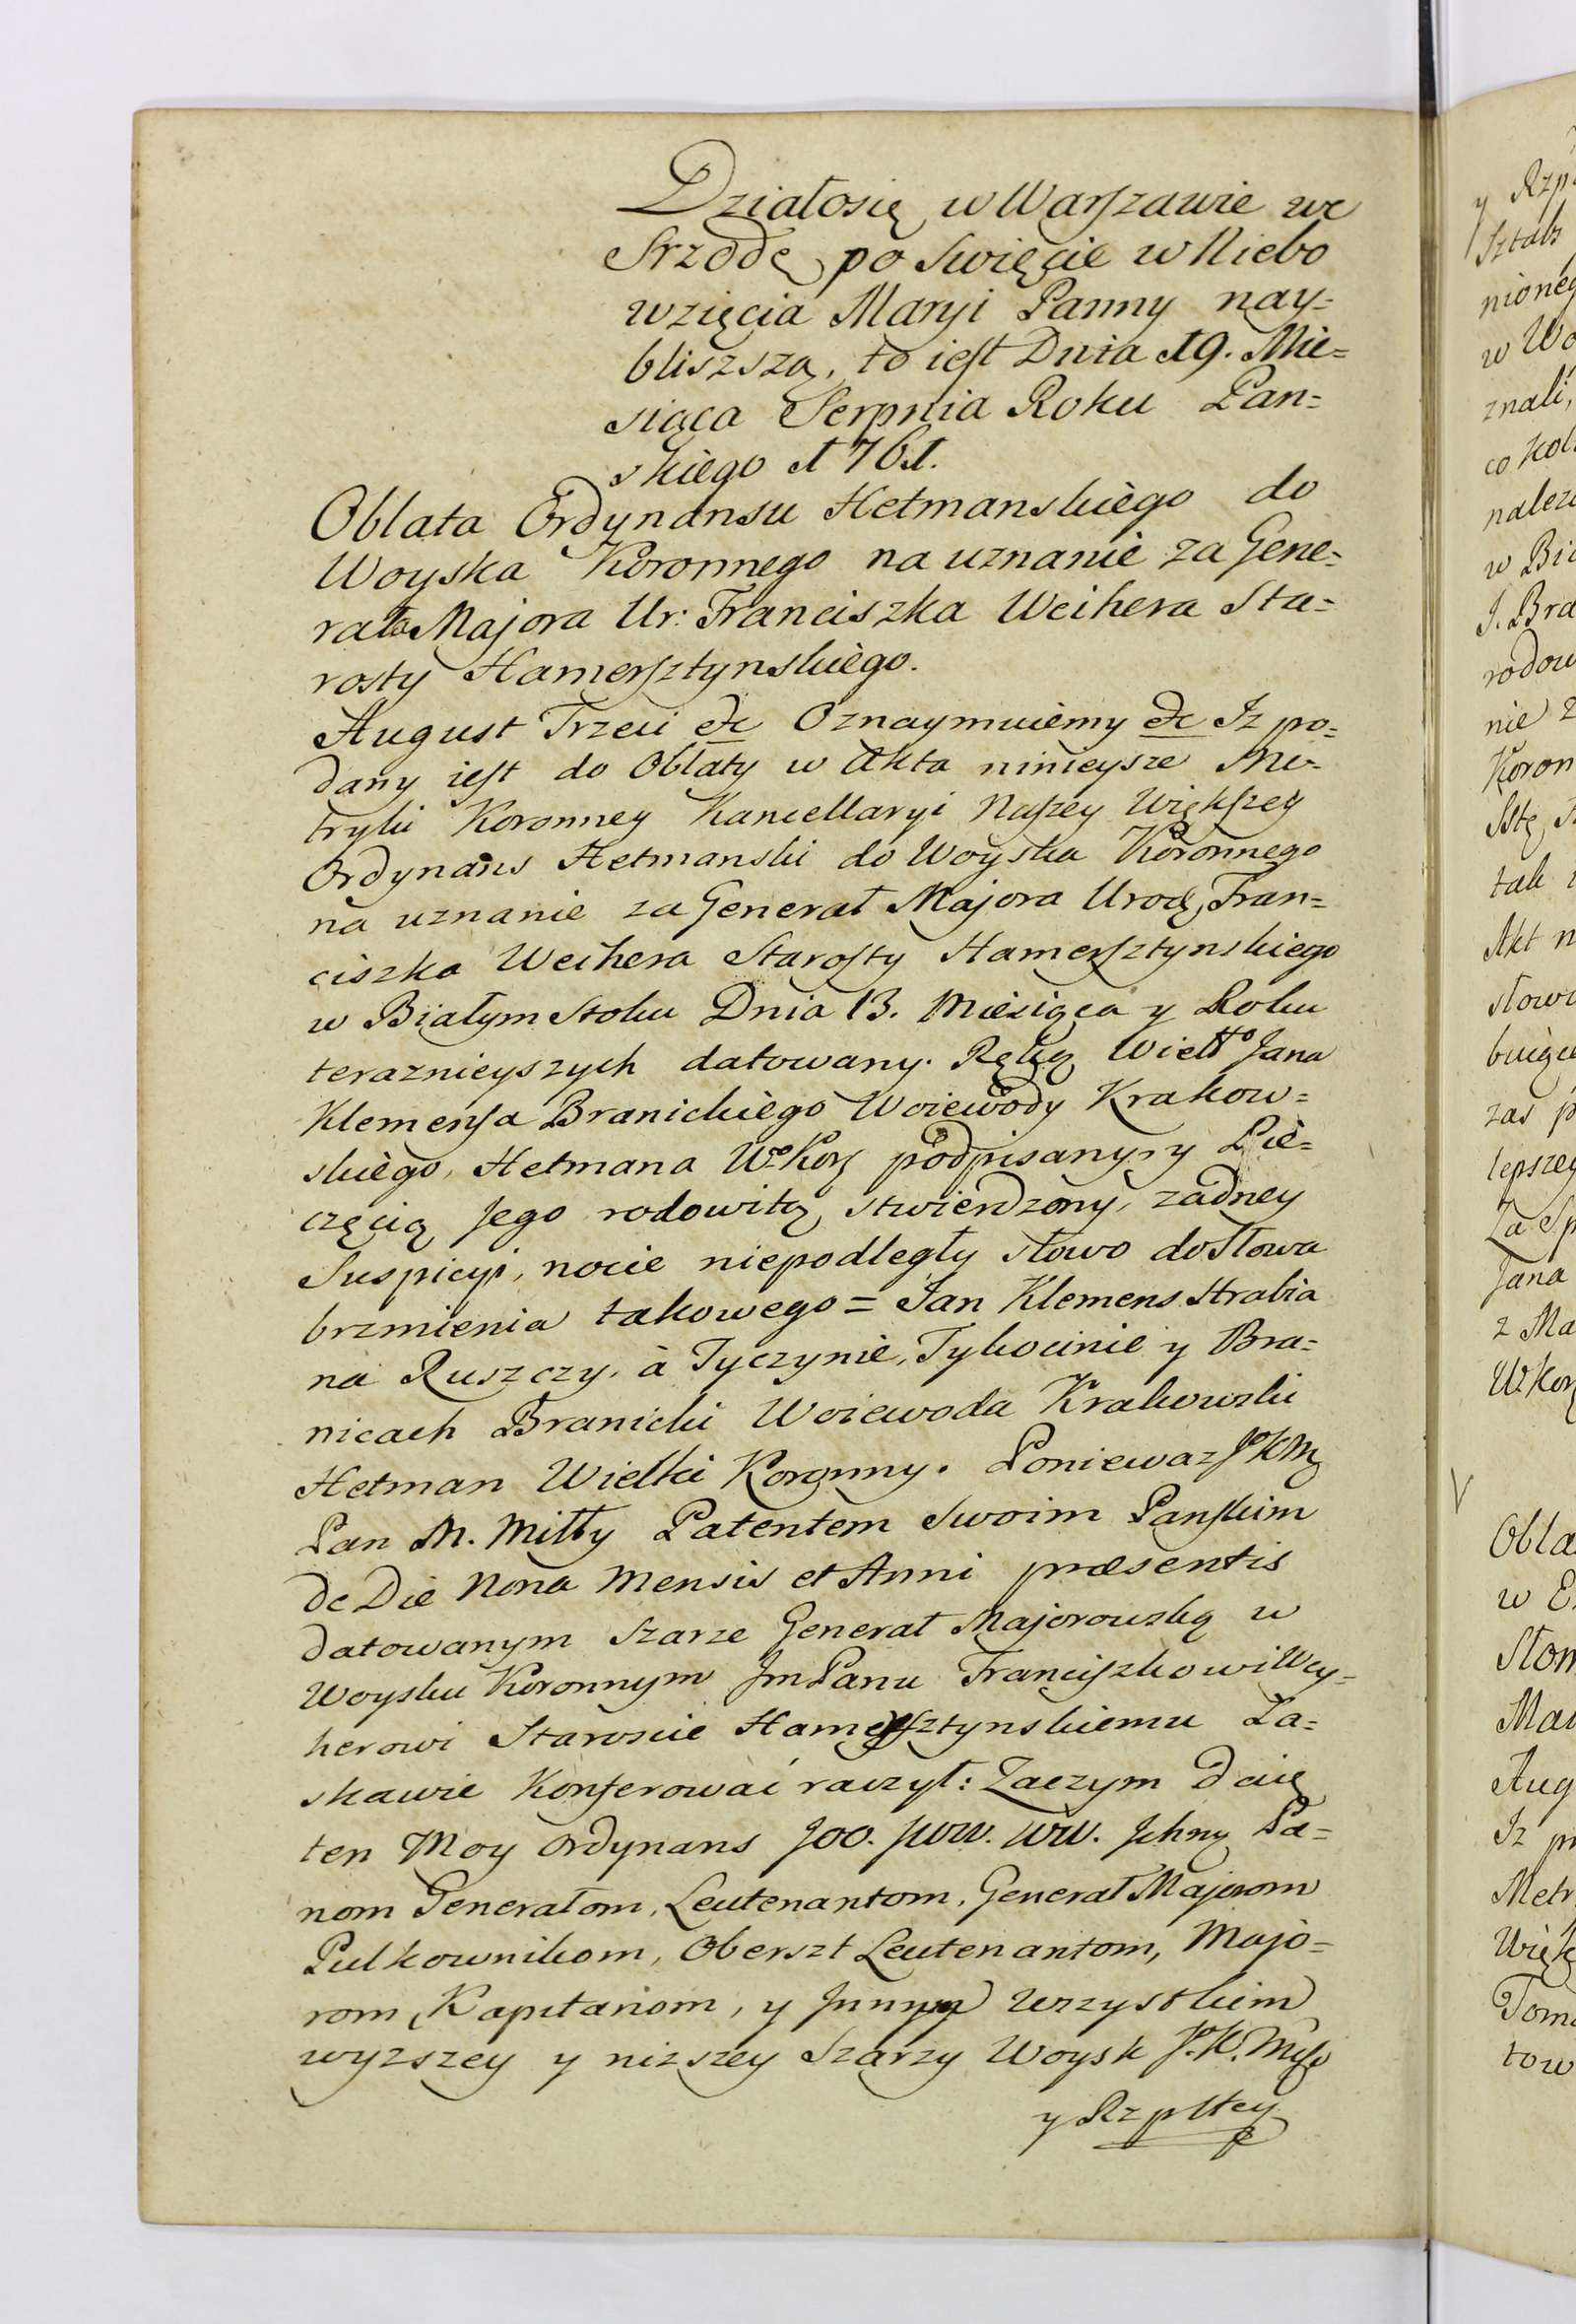 Działosię w Warszawie we
Srzodę po Swięcie w Niebo
wzięcia Maryi Panny nay=
bliszszą, to iest Dnia 19. Mie=
siąca Serpnia Roku Pan=
skiego 1761.
Oblata Ordynansu Hetmanskiego do
Woyska Koronnego na uznanie za Gene=
rała Majora Ur: Franciszka Weihera Sta=
rosty Hamersztynskiego.
August Trzeci &c Oznaymuiemy &c Iz po=
dany iest do Oblaty w Akta ninieysze Me=
tryki Koronney Kancellaryi Naszey Większey
Ordynans Hetmanski do Woyska Koronnego
na uznanie za Generał Majora Urodz Fran=
ciszka Weihera Starosty Hamersztynskiego
w Białym Stoku Dnia 13. Miesiąca y Roku
teraznieyszych datowany. Ręką Wielgo Jana
Klemensa Branickiego Woiewody Krakow=
skiego, Hetmana Wgo Kor podpisany, y Pie=
częcią Jego rodowitą stwierdzony, zadney
Suspicyi, nocie niepodległy słowo do słowa
brzmienia takowego = Jan Klemens Hrabia
na Ruszczy, à Tyczynie, Tykocinie y Bra=
nicach Branicki Woiewoda Krakowski
Hetman Wielki Koronny. Poniewaz JoKMc
Pan M. Miłły Patentem Swoim Panskim
de Die Nona Mensis et Anni præsentis
datowanym Szarze Generał Majorowską w
Woysku Koronnym Jm Panu Franciszkowi Wey=
herowi Staroscie Hamersztynskiemu Ła=
skawie Konferować raczył: Zaczym Daię
ten Moy Ordynans JOO. JWW. WW. Ichmc Pa=
nom Generałom, Leutenantom, Generał Majorom
Pulkownikom, Oberszt Leutenantom, Majo=
rom, Kapitanom, y Innym Wszystkim
wyzszey y nizszey Szarzy Woysk J.K.Msci
y Rzpltey

y Rzp
Sztab
nioneg
w Wo
znali,
co kol
nalez
w Bia
J. Bra
rodow
nie z
Koron
tak
Akt n
słowo
buiące
zas p
lepszey
Za Sp
Jana
z Ma
W.Kor
Obla
w E
Stom
Mar
Aug
Iz po
Metr
Więk
Toma
tow